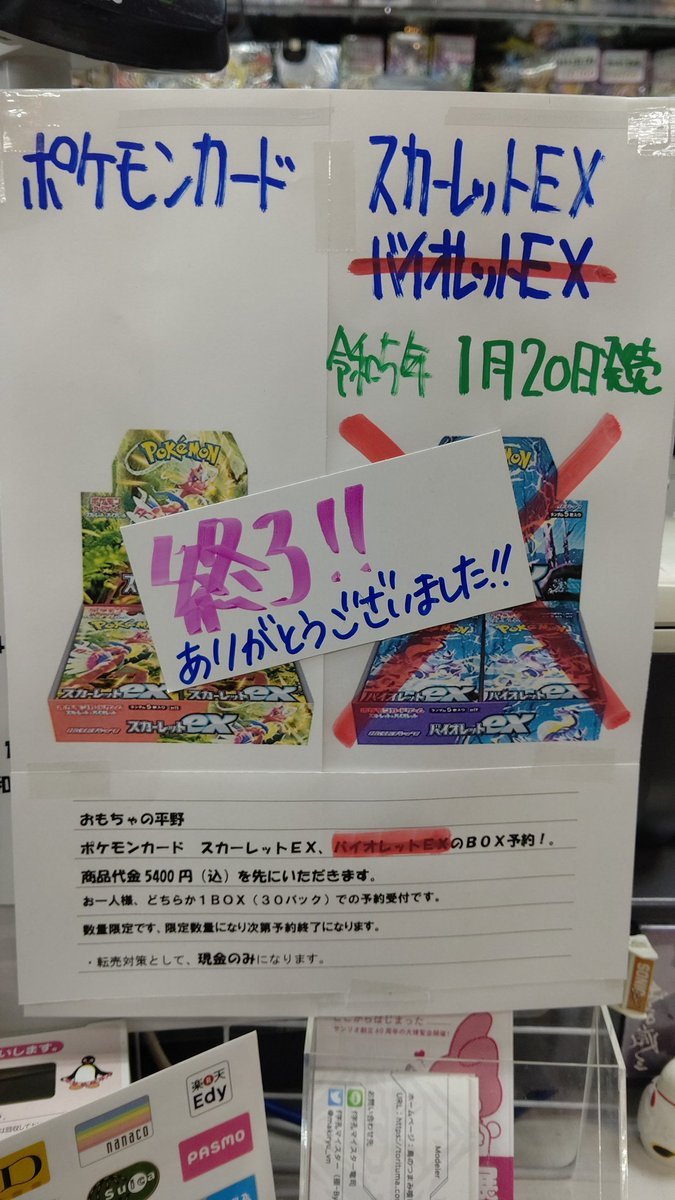 ポケモンカード
スカーレットEX
バイオレットEX
令和5年 1月20日発売
POKéMON
終了!!
ありがとうございました!!
スカーレットex
バイオレットex
スカーレットex
バイオレットex
おもちゃの平野
ポケモンカード スカーレットEX、バイオレットEXのBOX予約！。
商品代金5400円（込）を先にいただきます。
お一人様、どちらか1BOX（30パック）での予約受付です。
数量限定です、限定数量になり次第予約終了になります。
・転売対策として、現金のみになります。
いします。
楽天
Edy
nanaco
PASMO
Suica
ここからはじまった
サンリオ創立60周年の大博覧会開催!
Modeler